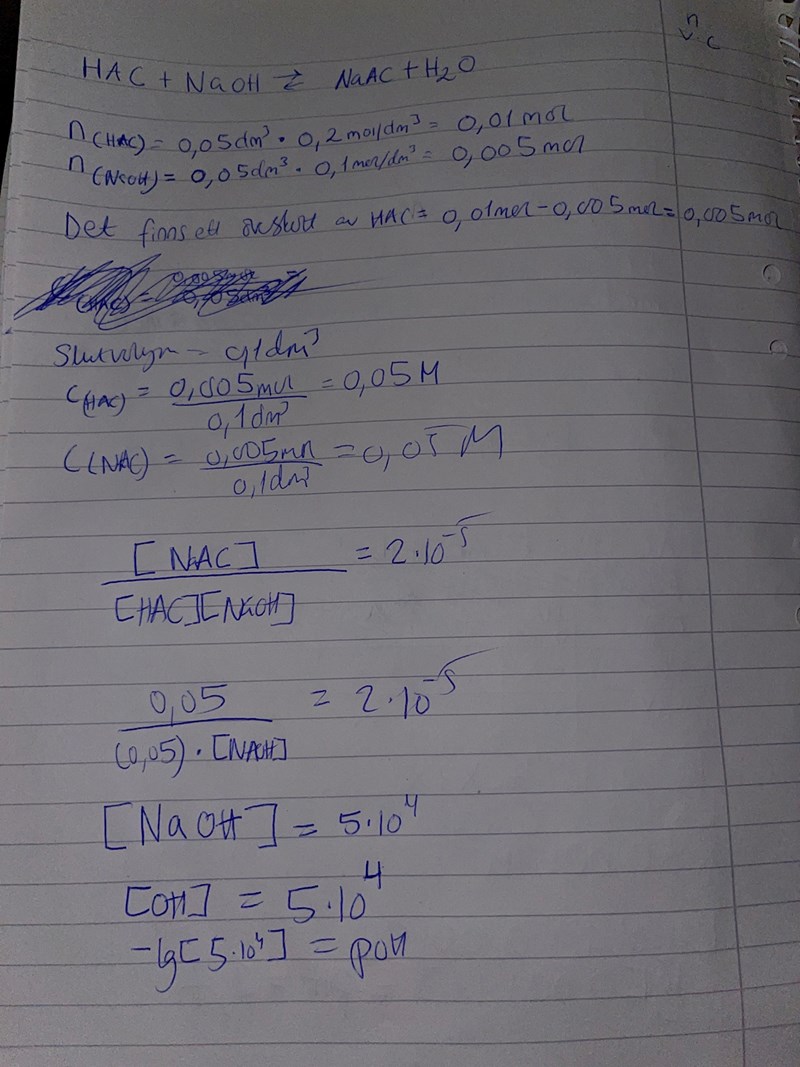 n
v·c
HAC + NaOH ⇄ NaAC + H₂O
n(HAC) = 0,05dm³ · 0,2mol/dm³ = 0,01mol
n(NaOH) = 0,05dm³ · 0,1mol/dm³ = 0,005mol
Det finns ett överskott av HAC = 0,01mol - 0,005mol = 0,005mol
Slutvolym = 0,1dm³
C(HAC) = 0,005mol / 0,1dm³ = 0,05M
C(NAC) = 0,005mol / 0,1dm³ = 0,05M
[NaAC] / [HAC][NaOH] = 2·10⁻⁵
0,05 / (0,05)·[NAOH] = 2·10⁻⁵
[NaOH] = 5·10⁴
[OH] = 5·10⁴
-lg[5·10⁴] = pOH